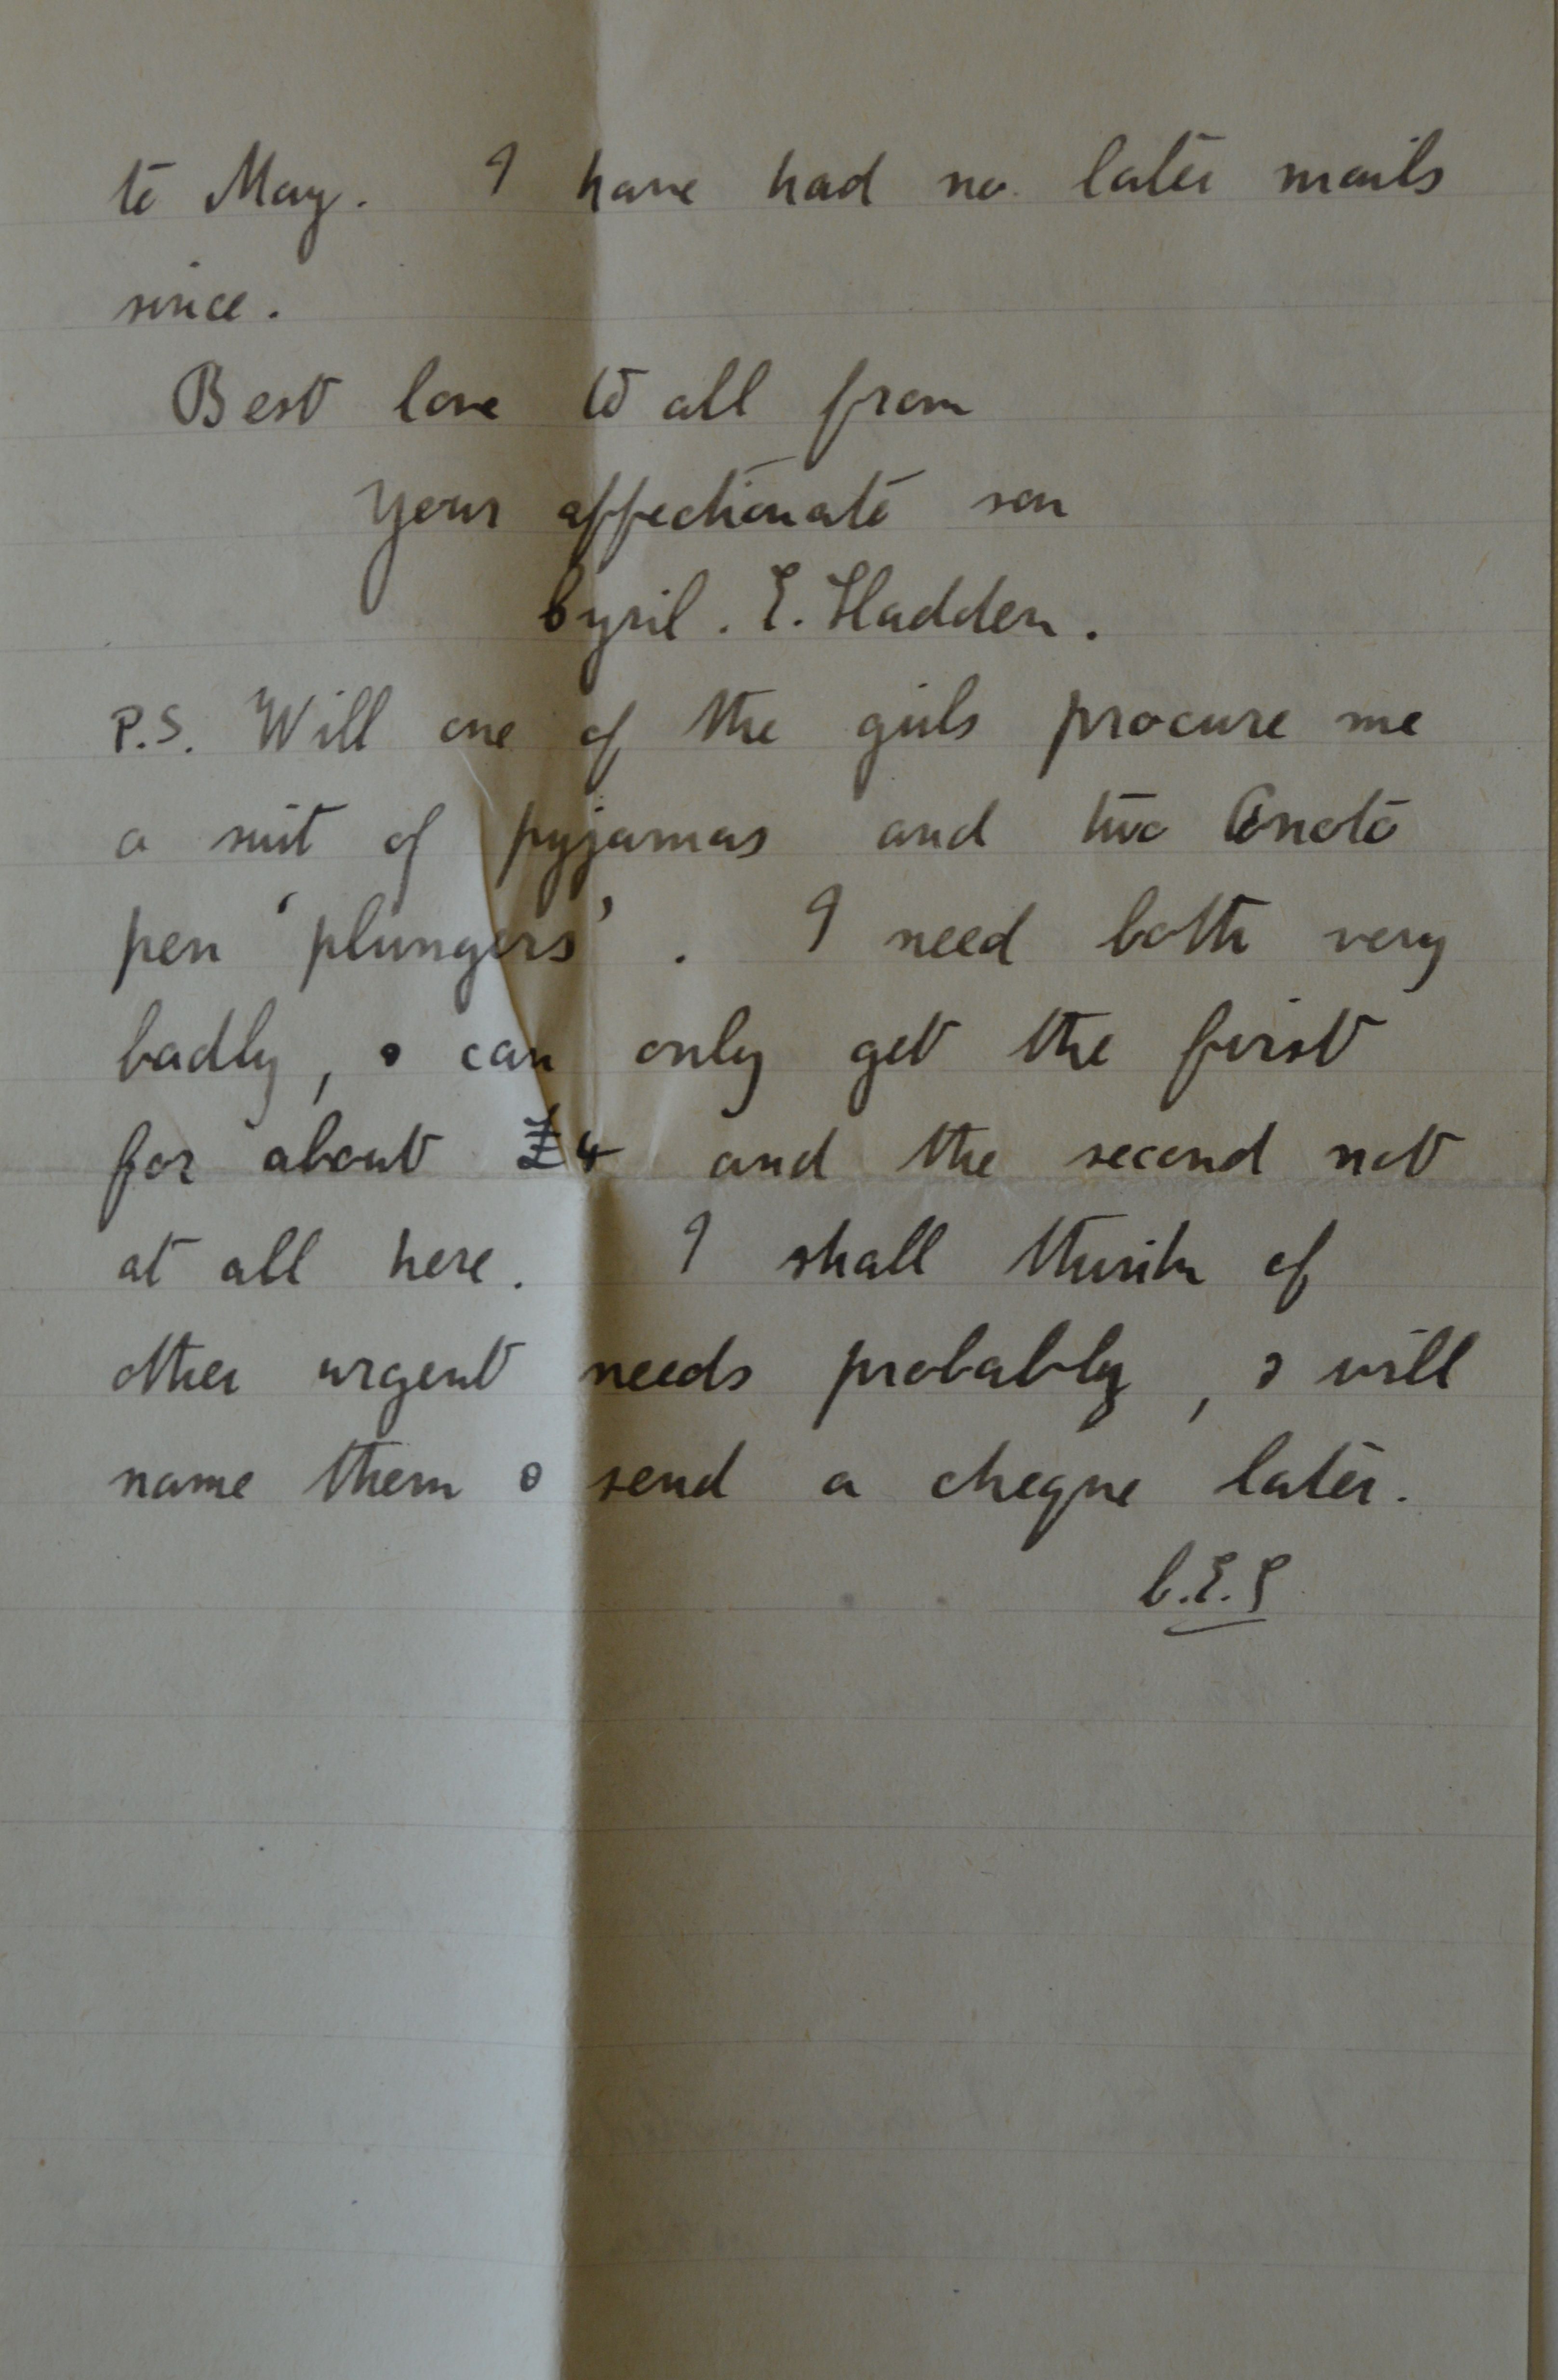 to May. I have had no later mails
since.
Best love to all from
Your affectionate son
Cyril. E. Hadden.
P.S. Will one of the girls procure me
a suit of pyjamas and two Onoto
pen 'plungers'. I need both very
badly, & can only get the first
for about £4 and the second not
at all here. I shall think of
other urgent needs probably, & will
name them & send a cheque later.
C.E.